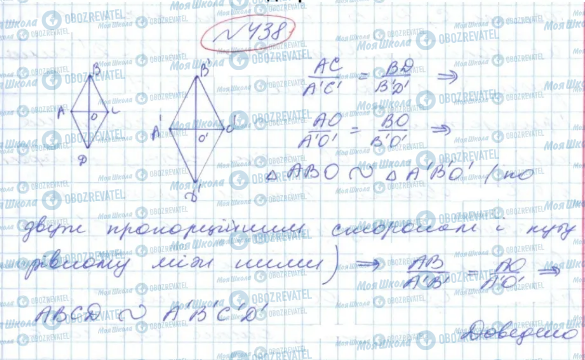 №438
B
A O C
D
B'
A' O' C'
D'
AC/A'C' = BD/B'D' ⇒
AO/A'O' = BO/B'O' ⇒
△ABO ~ △A'B'O' (по
двум пропорційним сторонам і куту
рівному між ними) ⇒ AB/A'B' = AO/A'O' ⇒
ABCD ~ A'B'C'D'
Доведено
Моя Школа
OBOZREVATEL